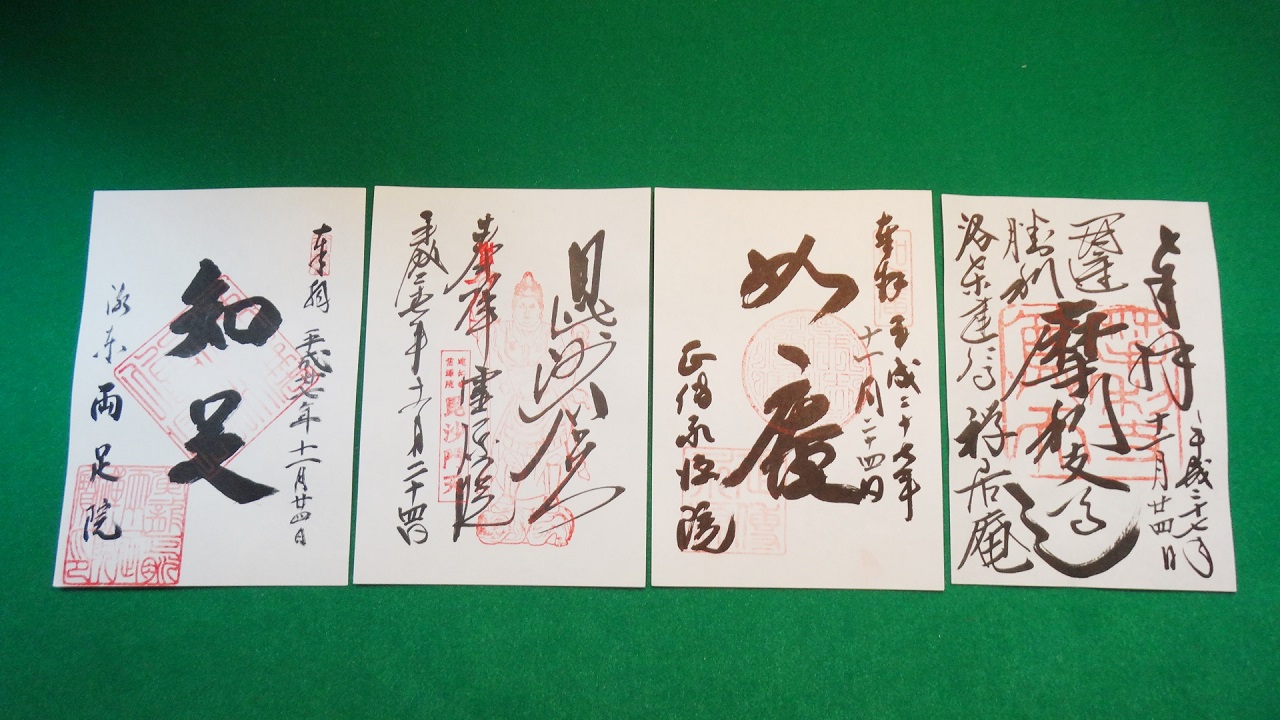 奉拝
平成廿七年十一月廿四日
知足
洛東 両足院
毘沙門天
奉拝 霊源院
平成二十七年十一月二十四日
毘沙門天
奉拝 平成二十七年
十一月二十四日
如意
正伝永源院
奉拝
平成二十七年
十一月廿四日
開運
勝利
摩利支尊天
洛東建仁寺 禅居庵